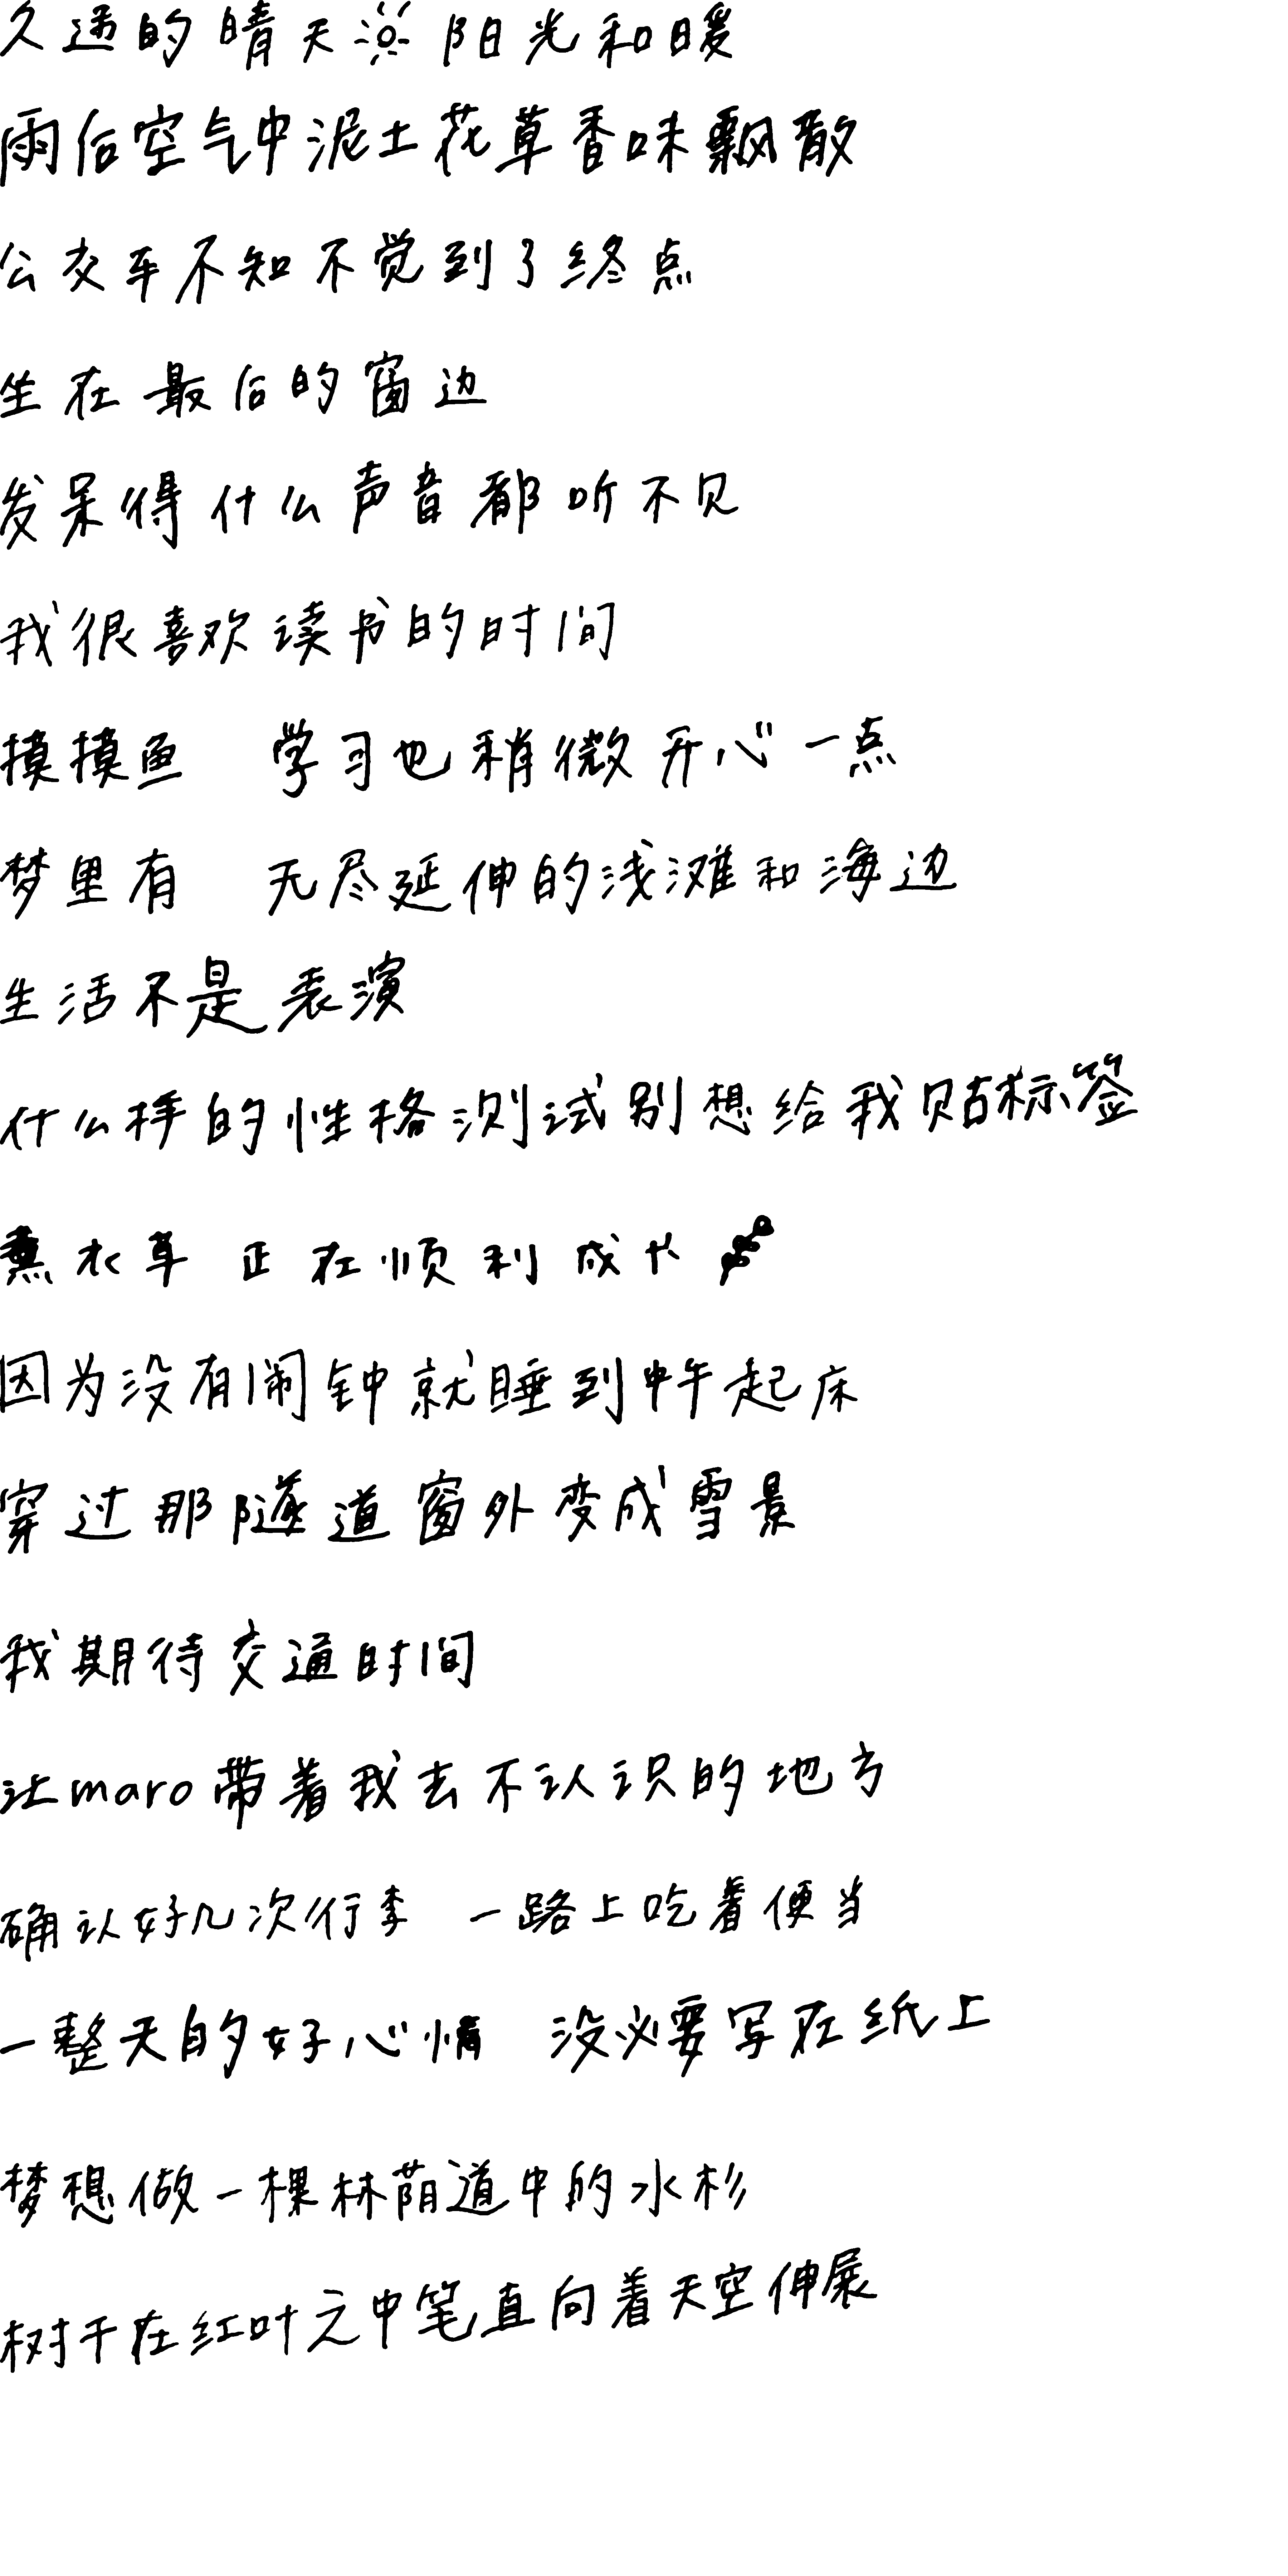 久违的晴天 阳光和暖
雨后空气中泥土花草香味飘散
公交车不知不觉到了终点
坐在最后的窗边
发呆得什么声音都听不见
我很喜欢读书的时间
摸摸鱼 学习也稍微开心一点
梦里有 无尽延伸的浅滩和海边
生活不是表演
什么样的性格测试别想给我贴标签
薰衣草 正在顺利成长
因为没有闹钟就睡到中午起床
穿过那隧道窗外变成雪景
我期待交通时间
让maro带着我去不认识的地方
确认好几次行李 一路上吃着便当
一整天的好心情 没必要写在纸上
梦想做一棵林荫道中的水杉
树干在红叶之中笔直向着天空伸展